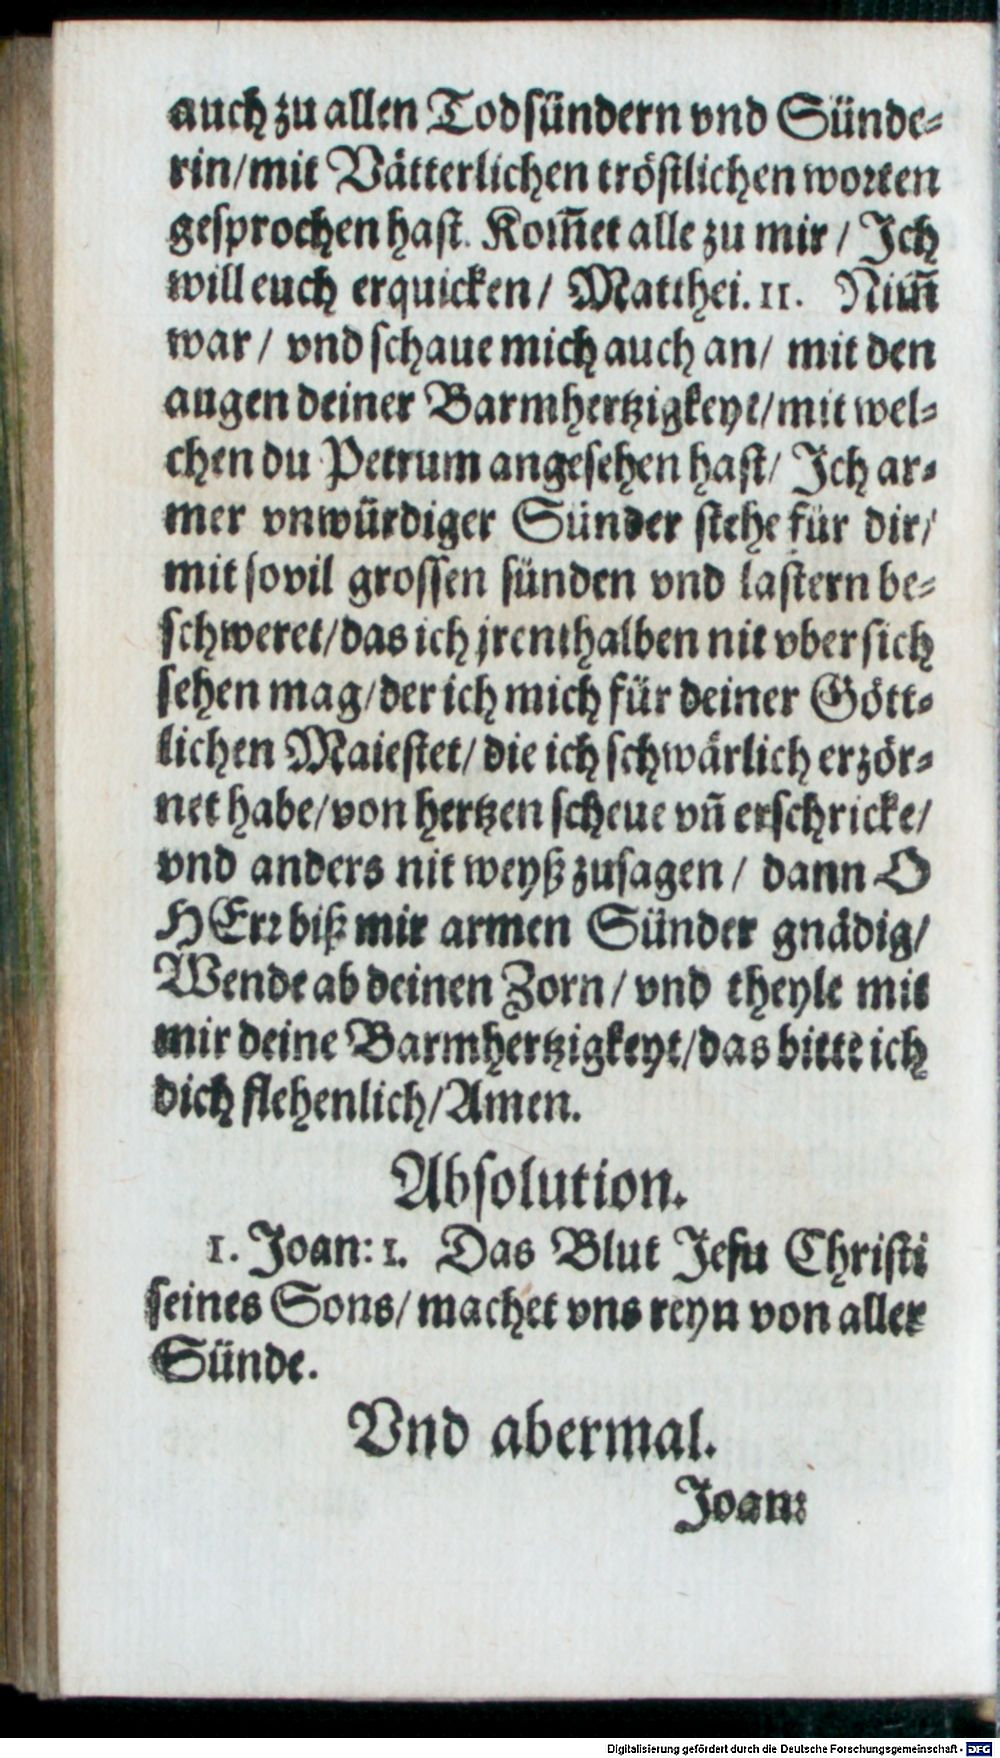 auch zu allen Todsündern vnd Sünde-
rin/mit Vätterlichen tröstlichen worten
gesprochen hast. Kom̃et alle zu mir / Ich
will euch erquicken / Matthei. 11. Nim̃
war / vnd schaue mich auch an / mit den
augen deiner Barmhertzigkeyt/mit wel-
chen du Petrum angesehen hast/ Ich ar-
mer vnwürdiger Sünder stehe für dir/
mit sovil grossen sünden vnd lastern be-
schweret/das ich jrenthalben nit vber sich
sehen mag/der ich mich für deiner Gött-
lichen Maiestet/ die ich schwärlich erzör-
net habe/von hertzen scheue vñ erschricke/
vnd anders nit weyß zusagen / dann O
HErr biß mir armen Sünder gnädig/
Wende ab deinen Zorn / vnd theyle mit
mir deine Barmhertzigkeyt/das bitte ich
dich flehenlich/Amen.
Absolution.
1. Joan: 1. Das Blut Jesu Christi
seines Sons/ machet vns reyn von aller
Sünde.
Vnd abermal.
Joan:
Digitalisierung gefördert durch die Deutsche Forschungsgemeinschaft - DFG